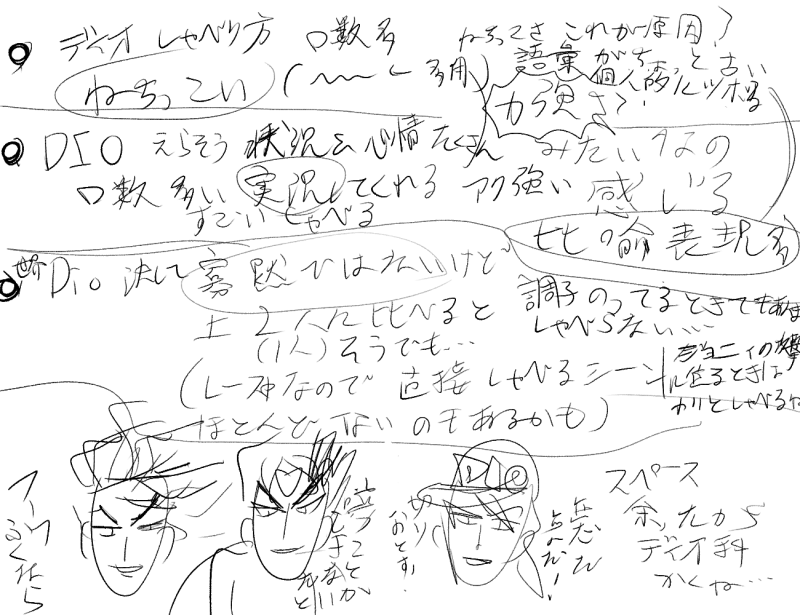 ディオ しゃべり方 口数多
ねちっこい (〜〜し 多用)
ねちってさ これが原因?
語彙がちょっと古い
個人的にツボる
力強さ?
DIO えらそう 状況&心情 たくさん みたいなの
口数 多い 実況してくれる アク強い 感じる
すごいしゃべる
比喩表現多
Dio 決して 寡黙ではないけど
上2人に比べると
(1人) そうでも…
調子のってるときでもあまり
しゃべらない…
(レース中なので 直接 しゃべるシーン
ほとんど ないのもあるかも)
ジョニィの
るときは
わりとしゃべるな
DIO
スペース
余ったから
ディオ科
かくね…